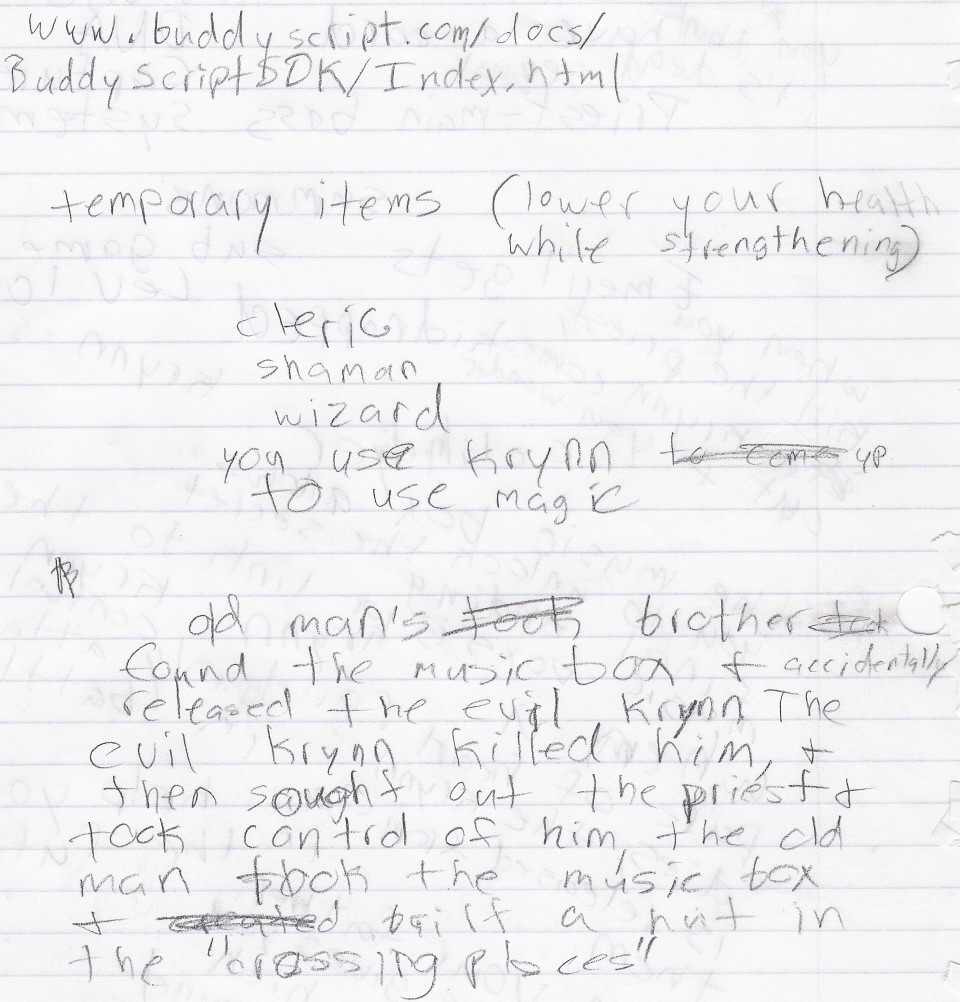 www.buddyscript.com/docs/
BuddyScriptSDK/Index.html
temporary items (lower your health
while strengthening)
cleric
shaman
wizard
you use krynn to come up
to use magic
old man's took brother
found the music box + accidentally
released the evil krynn. The
evil krynn killed him, +
then sought out the priest +
took control of him, the old
man took the music box
+ created built a hut in
the "crossing places"